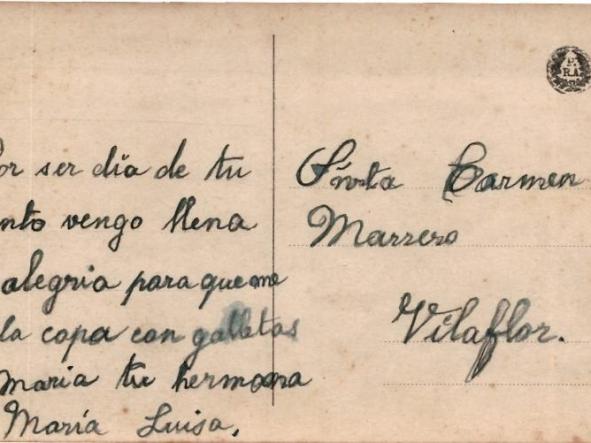 or ser día de tu
nto vengo llena
alegria para que me
la copa con galletas
maria tu hermana
María Luisa.
Srta Carmen
Marrero
Vilaflor.